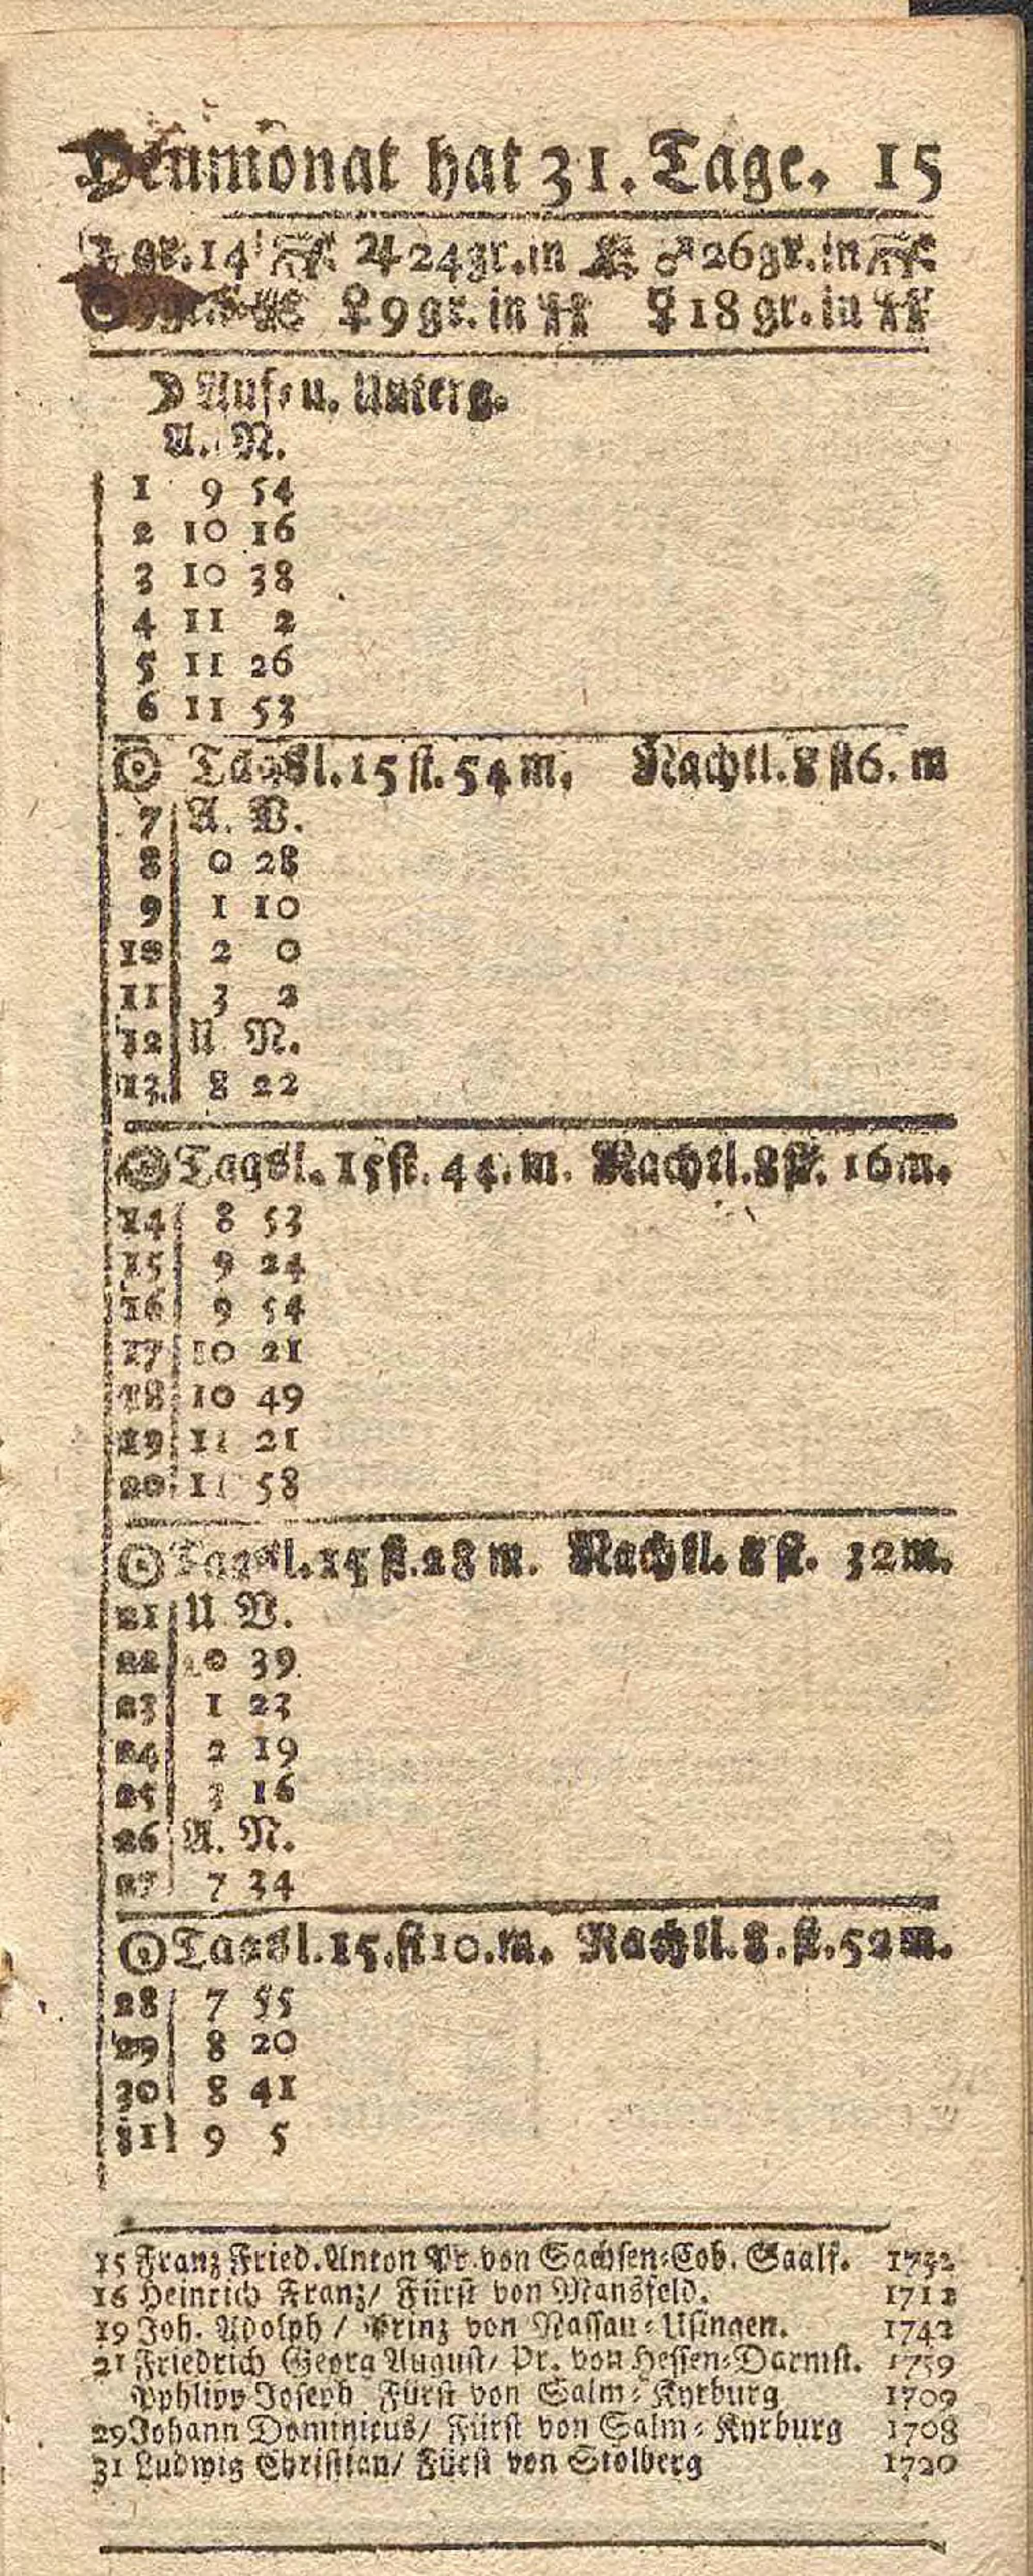 Heumonat hat 31. Tage. 15
gr. 14 ♃ 24 gr. in ♂ 26 gr. in
♀ 9 gr. in ☿ 18 gr. in
☽ Auf- u. Unterg.
U. N.
1 9 54
2 10 16
3 10 38
4 11 2
5 11 26
6 11 53
☉ Tagsl. 15 st. 54 m. Nachtl. 8 st 6. m
7 A. V.
8 0 28
9 1 10
10 2 0
11 3 2
12 U N.
13. 8 22
☉ Tagsl. 15 st. 44. m. Nachtl. 8 st. 16 m.
14 8 53
15 9 24
16 9 54
17 10 21
18 10 49
19 11 21
20 11 58
☉ Tagsl. 15 st. 28 m. Nachtl. 8 st. 32 m.
21 U V.
22 0 39
23 1 23
24 2 19
25 3 16
26 A. N.
27 7 34
☉ Tagsl. 15. st 10. m. Nachtl. 8. st. 52 m.
28 7 55
29 8 20
30 8 41
31 9 5
15 Franz Fried. Anton Pr. von Sachsen-Cob. Saalf.
16 Heinrich Franz/ Fürst von Mansfeld. 1712
19 Joh. Adolph / Prinz von Nassau-Usingen. 1742
21 Friedrich Georg August/ Pr. von Hessen-Darmst. 1759
Joseph Fürst von Salm-Kyrburg 1709
29 Johann Dominicus/ Fürst von Salm-Kyrburg 1708
31 Ludwig Christian/ Fürst von Stolberg 1720